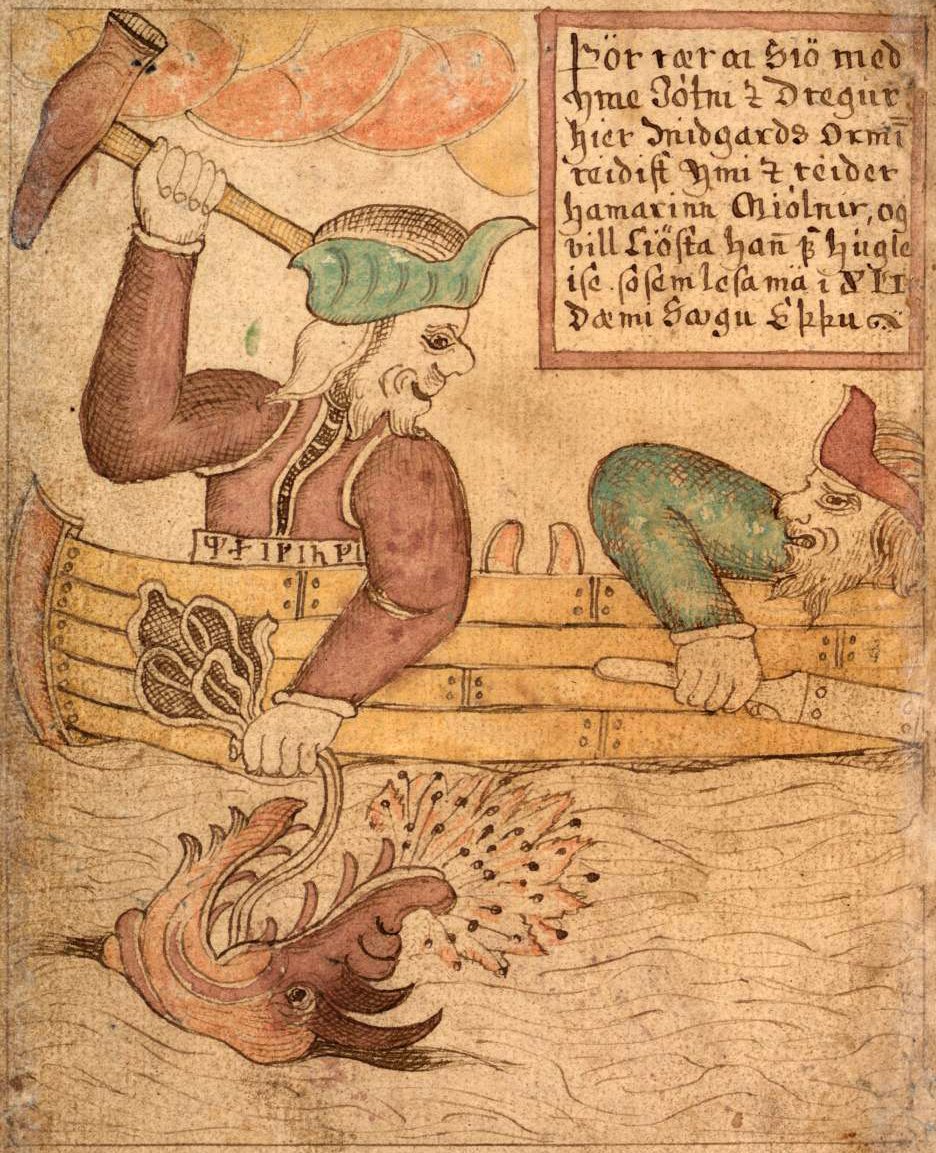 Þör rær a Siö med
Yme Jötni ⁊ Dregur
hier Midgards Ormī
reidist Ymi ⁊ reider
hamarinn Miölnir, og
vill Liösta han̄ þ̄ hugle
ise. so sem lesa mä i XLI
Dæmi Sögu Eþþu